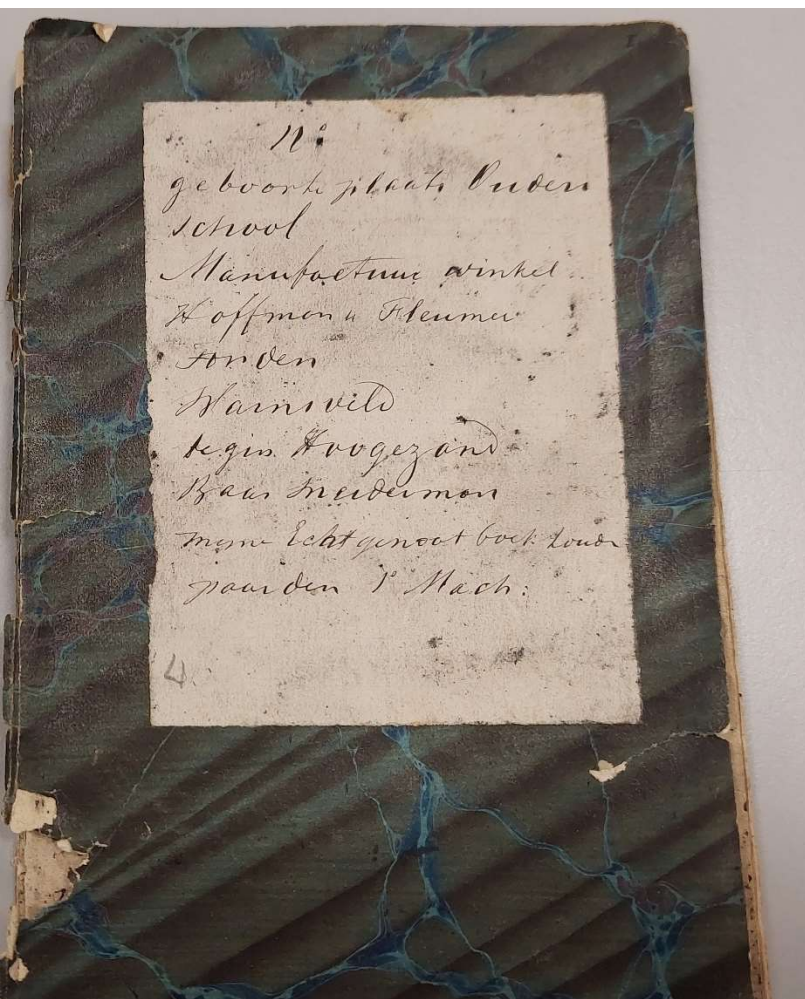 No
geboorte plaats Ouders
school
Manufactuur winkel
Hoffman u Fleumer
Warnsveld
begin Hoogezand
Baas Sneiderman
myne Echtgenoot boek houder
paarden 1e Mach:
4